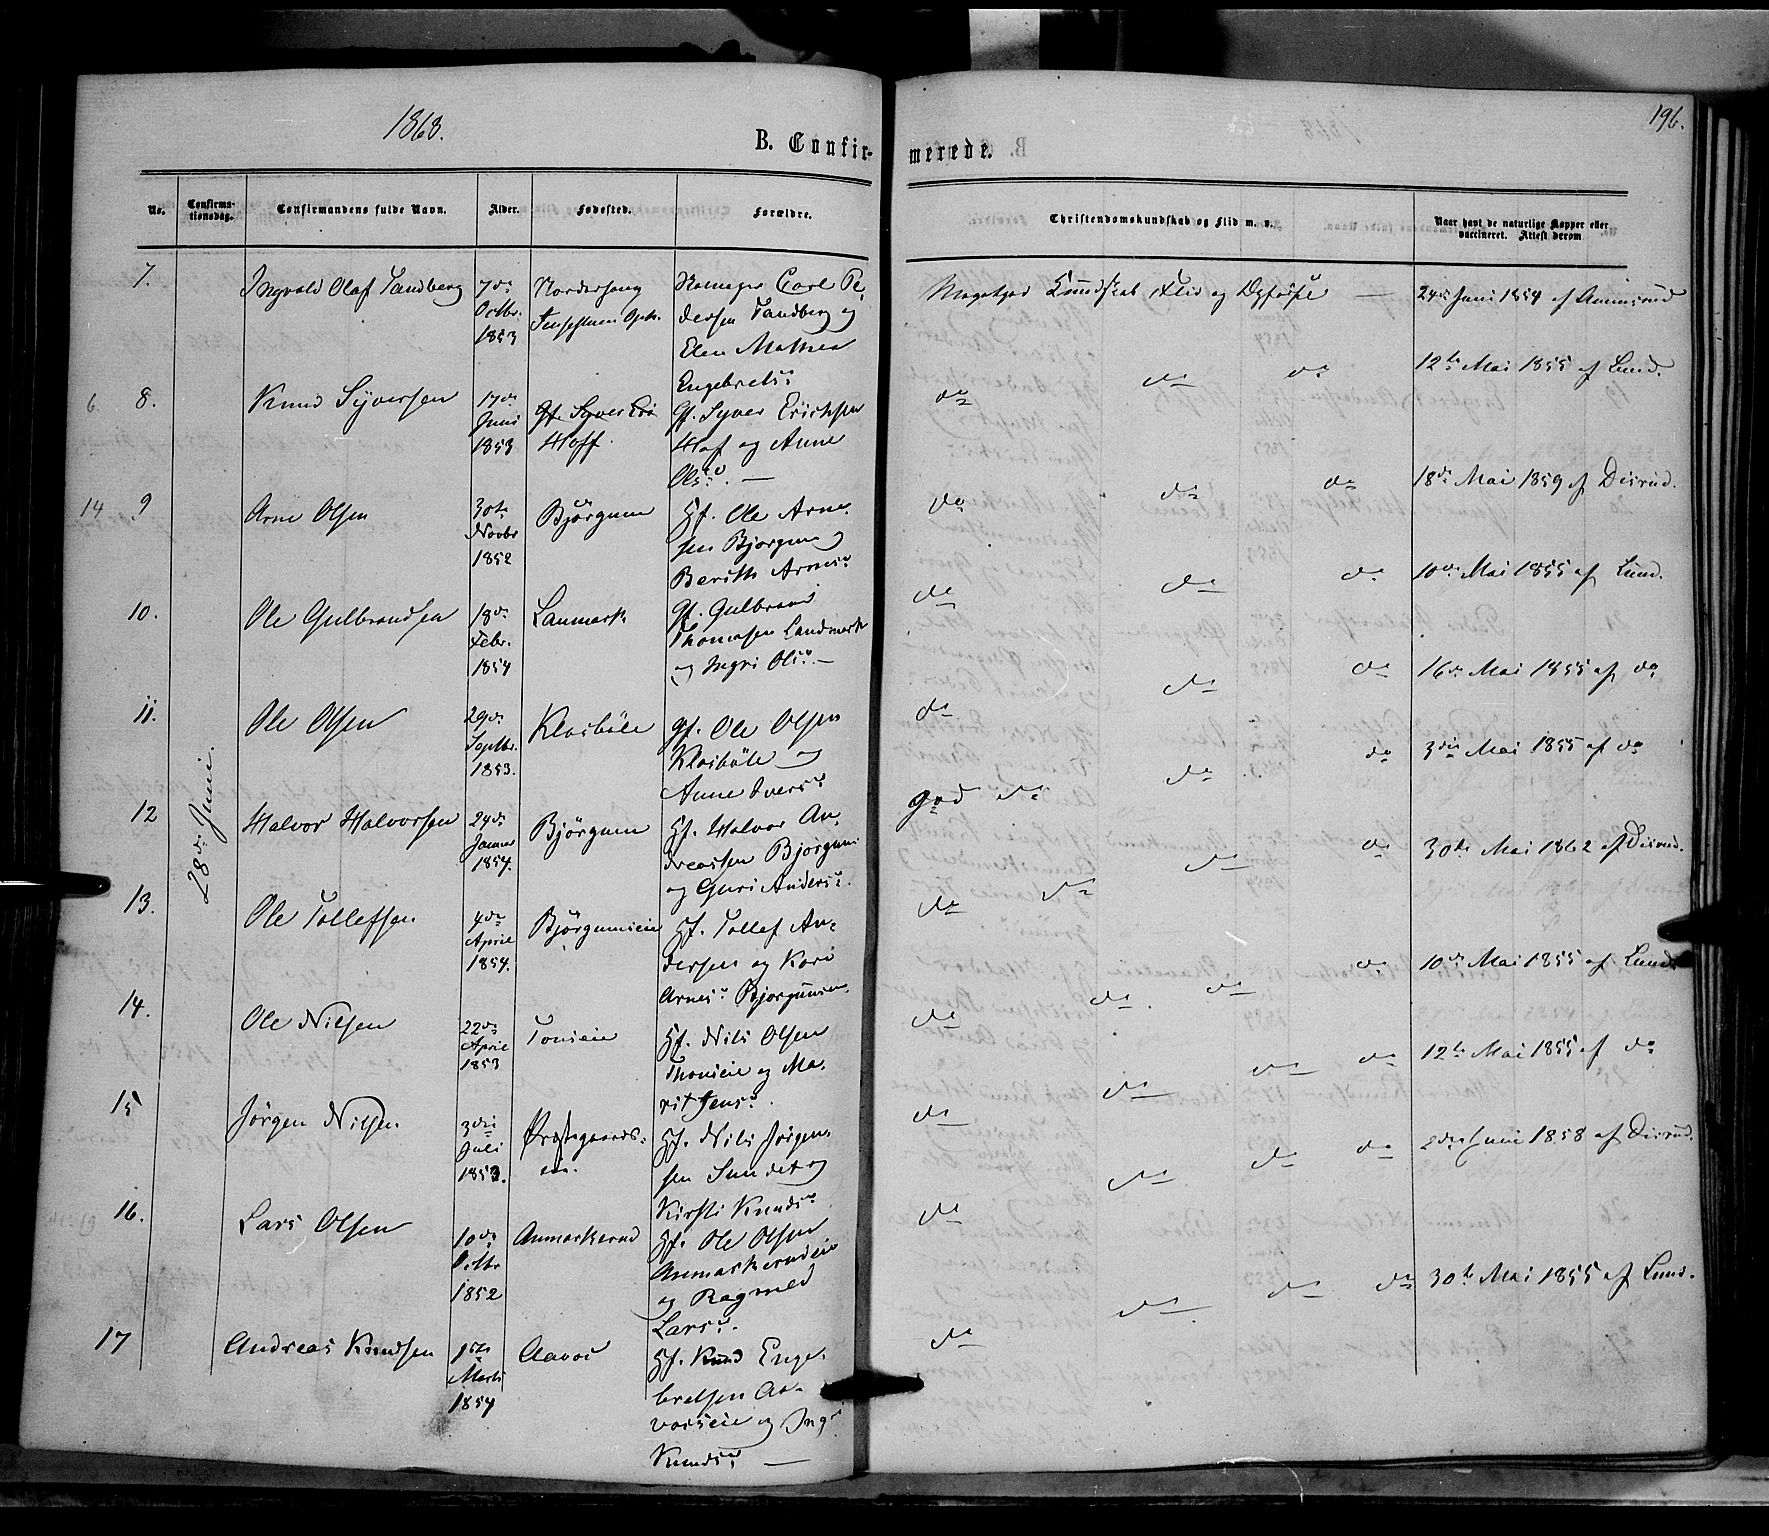 1868.
196.
B. Confir-
merede.
No.
Confirma-
tionsdag.
Confirmandens fulde Navn.
Alder.
Fødested.
Forældre.
Christendomskundskab og Flid m. v.
Naar havt de naturlige Kopper eller
vaccineret. Attest derom
28de Juni.
7.
Ingvald Olaf Tandberg
7de
Octbr.
1853
Carl Pe-
dersen Tandberg og
Elen Mathea
Engebrets.
Meget god Kundskab Flid og
24de Juni 1854 af
6.
8.
Knud Syversen
17de
Juni
1853
Hoff.
Gf. Syver Erichsen
Hof og Anne
Ols. —
do do do
12te Mai 1855 af Lund.
14
9
Arne Olsen
30te
Novbr
1852
Bjørgum
Gf. Ole Arne-
sen Bjørgum og
Berith Arnes.
do do do
18de Mai 1859 af Disrud.
10.
Ole Gulbrandsen
18de
Febr.
1854
Lanmark
Gf. Gulbrand
Thomasen Landmark
og Ingri Ols. —
do do do
10de Mai 1855 af Lund.
11.
Ole Olsen
29de
Septbr.
1853.
Klosbøle
Gf. Ole Olsen
Klosbøle og
Anne Ivers.
do do do
16de Mai 1855 af do
12
Halvor Halvorsen
24de
Januar
1854.
Bjørgum
Hf. Halvor An-
dreassen Bjørgum
og Guri Anders.
god do do do
3die Mai 1855 af do
13.
Ole Tollefsen
4de
April
1854.
Bjørgumseie
Hf. Tollef An-
dersen og Kari
Arnes. Bjørgumseie
do do do do
30te Mai 1862 af Disrud.
14.
Ole Nilsen
22de
April
1853
Tonseie
Hf. Nils Olsen
Thonseie og Ma-
rit Jens.
do do do do
10de Mai 1855 af Lund.
15
Jørgen Nilsen
3die
Juli
1853.
Præstegaards-
eie.
Hf. Nils Jørgen-
sen Sundet og
Kirsti Knuds.
do do do do
12te Mai 1855 af do
16.
Lars Olsen
10de
Octbr
1852
Anmarkerud
Hf. Ole Olsen
Anmarkerudeie
og Ragnild
Lars.
do do do do
Juni 1858 af Disrud.
17
Andreas Knudsen
1ste
Marts
1854
Hf. Knud Enge-
bretsen Aa-
vorseie og
Knuds. —
do do do do
30te Mai 1855 af Lund.